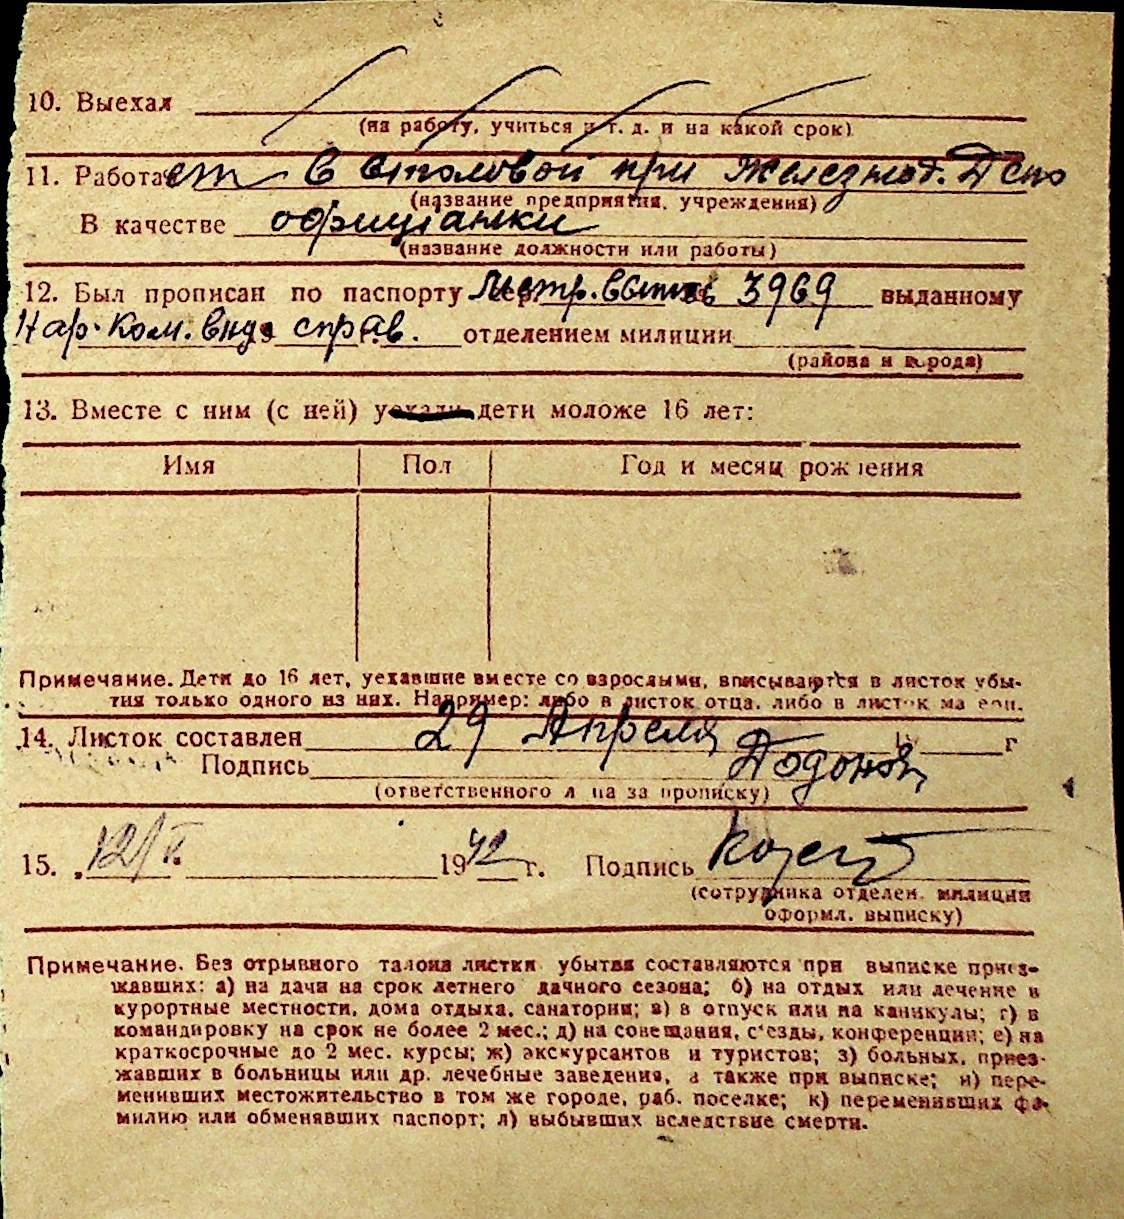 10. Выехал
(на работу, учиться и т. д. и на какой срок)
11. Работает в столовой при Железнод. Депо
(название предприятия, учреждения)
В качестве официантки
(название должности или работы)
12. Был прописан по паспорту 3969 выданному
Нар. Ком. внут справ. отделением милиции
(района и города)
13. Вместе с ним (с ней) уехали дети моложе 16 лет:
Имя Пол Год и месяц рождения
Примечание. Дети до 16 лет, уехавшие вместе со взрослыми, вписываются в листок убы-
тия только одного из них. Например: либо в листок отца, либо в листок матери.
14. Листок составлен 29 Апреля 19 г
Подпись
(ответственного лица за прописку)
15. 12/V. 1942 г. Подпись
(сотрудника отделен. милиции
оформл. выписку)
Примечание. Без отрывного талона листки убытия составляются при выписке приез-
жавших: а) на дачи на срок летнего дачного сезона; б) на отдых или лечение в
курортные местности, дома отдыха, санатории; в) в отпуск или на каникулы; г) в
командировку на срок не более 2 мес.; д) на совещания, съезды, конференции; е) на
краткосрочные до 2 мес. курсы; ж) экскурсантов и туристов; з) больных, приез-
жавших в больницы или др. лечебные заведения, а также при выписке; и) пере-
менивших местожительство в том же городе, раб. поселке; к) переменивших фа-
милию или обменявших паспорт; л) выбывших вследствие смерти.